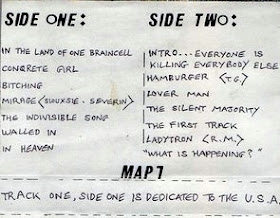 SIDE ONE:
IN THE LAND OF ONE BRAINCELL
CONCRETE GIRL
BITCHING
MIRAGE (SIOUXSIE. SEVERIN)
THE INDIVISIBLE SONG
WALLED IN
IN HEAVEN
SIDE TWO:
INTRO... EVERYONE IS
KILLING EVERYBODY ELSE
HAMBURGER (T.G.)
LOVER MAN
THE SILENT MAJORITY
THE FIRST TRACK
LADYTRON (R.M.)
"WHAT IS HAPPENING?"
MAP 7
TRACK ONE, SIDE ONE IS DEDICATED TO THE U.S.A